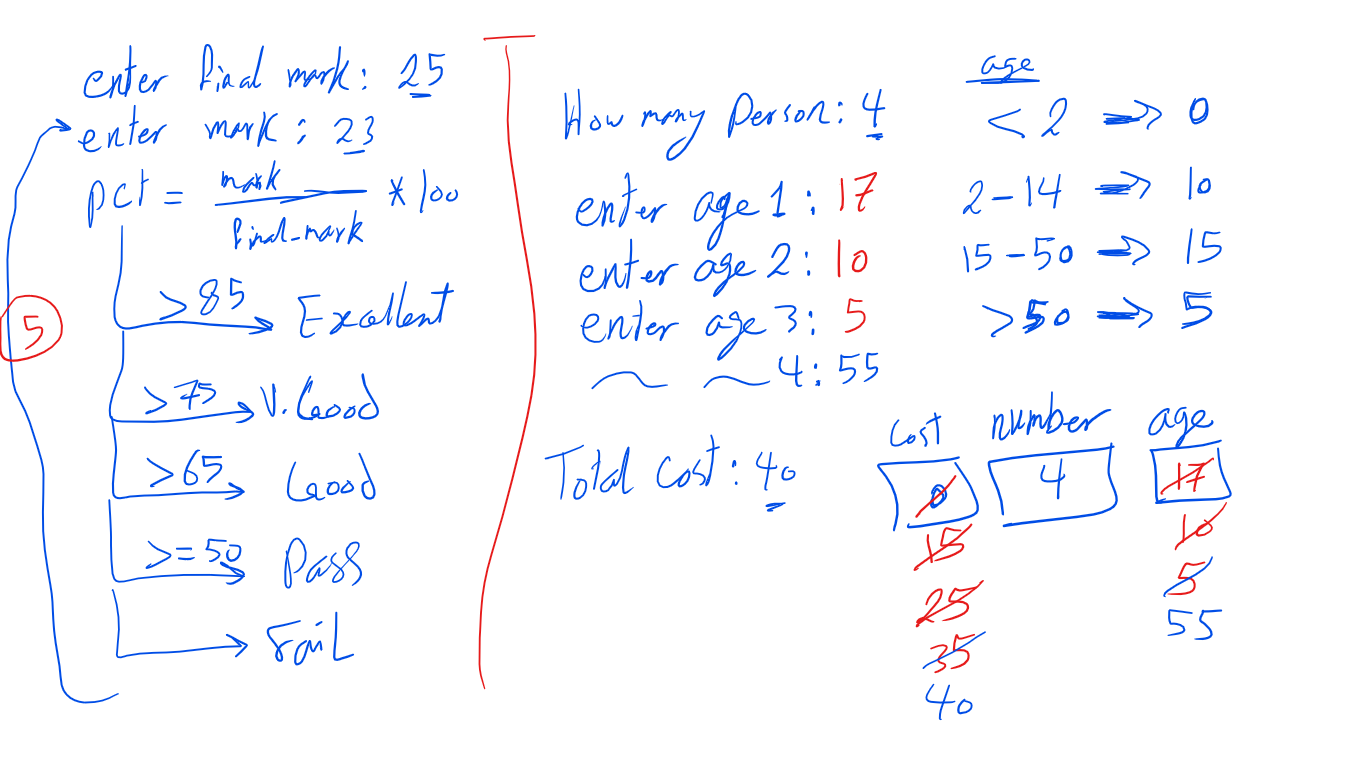 enter final mark: 25
enter mark: 23
pct = mark / final-mark * 100
>85 Excellent
>75 V. Good
>65 Good
>=50 Pass
Fail
5
How many Person: 4
enter age 1: 17
enter age 2: 10
enter age 3: 5
4: 55
Total Cost: 40
age
<2 => 0
2-14 => 10
15-50 => 15
>50 => 5
Cost number age
0 4 17
15 10
25 5
35 55
40